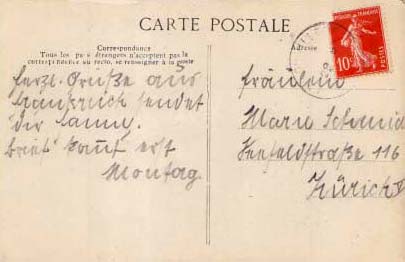 CARTE POSTALE
Correspondance
Tous les pays étrangers n'acceptent pas la
correspondance au recto, se renseigner à la poste
Adresse
RÉPUBLIQUE FRANÇAISE
10c
POSTES
herzl. Grüße aus
Frankreich sendet
dir
Brief kommt erst
Montag.
Fräulein
Marie Schmid
116
Zürich V